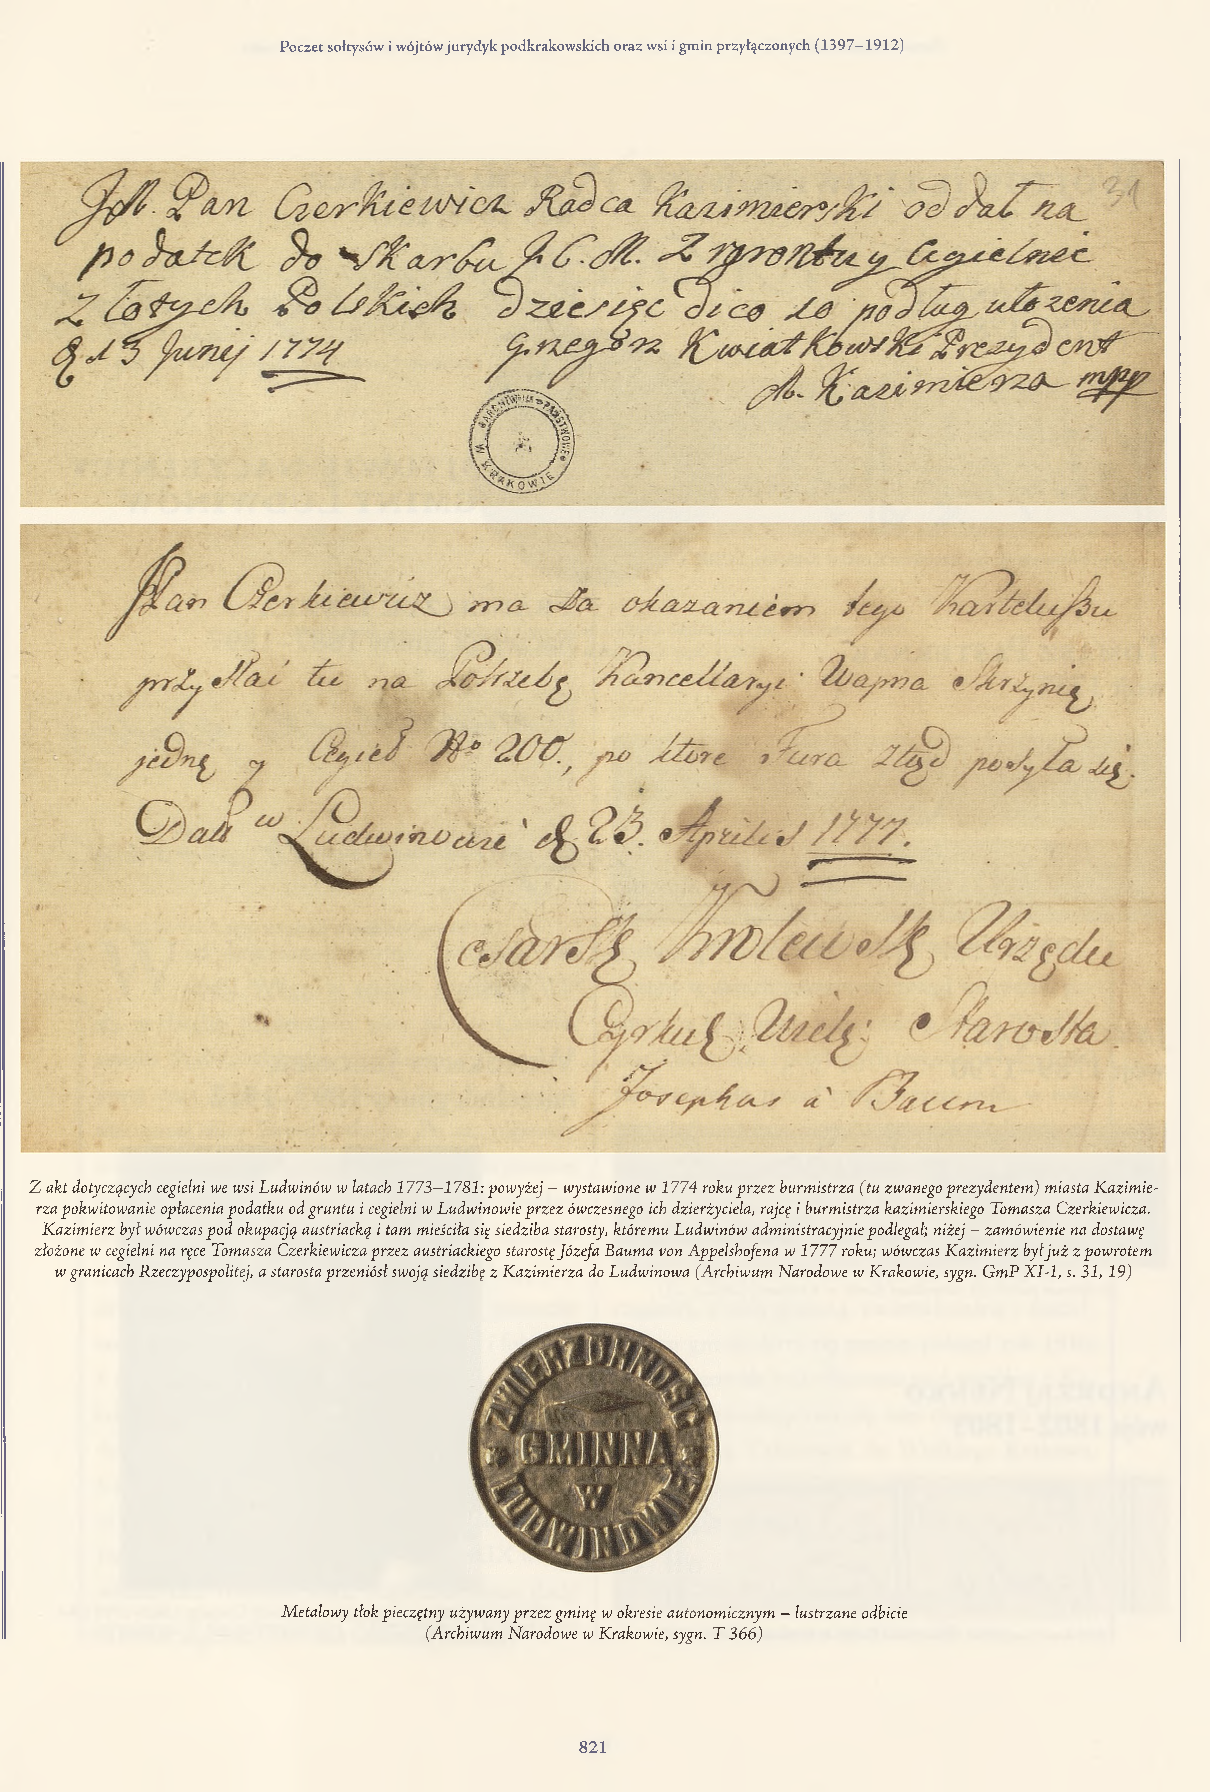 Poczet sołtysów i wójtów jurydyk podkrakowskich oraz wsi i gmin przyłączonych (1397–1912)
31
JM. Pan Czerkiewicz Radca Kazimierski oddał na
podatek do Skarbu J. C. M. Z rgrontu y Cgielnie
Złotych Polskich dziesięc dico 10 podług ułozenia
d 13 Junij 1774 Grzegorz Kwiatkowski Prezydent
M. Kazimierza mpp
ARCHIWUM PAŃSTWOWE W KRAKOWIE
JPan Czerkiewicz ma za okazaniem tego Karteluszu
przysłać tu na Potrzebę Kancellaryi Wapna Skrzynię
jednę y Cegieł No 200., po ktore Fura ztąd posyła się.
Dań w Ludwinowie d 23. Aprilis 1777.
Cesarsk Krolewsk Urzędu
Cyrkuł Wielę: Starosta
Josephus à Baum
Z akt dotyczących cegielni we wsi Ludwinów w latach 1773–1781: powyżej – wystawione w 1774 roku przez burmistrza (tu zwanego prezydentem) miasta Kazimie-
rza pokwitowanie opłacenia podatku od gruntu i cegielni w Ludwinowie przez ówczesnego ich dzierżyciela, rajcę i burmistrza kazimierskiego Tomasza Czerkiewicza.
Kazimierz był wówczas pod okupacją austriacką i tam mieściła się siedziba starosty, któremu Ludwinów administracyjnie podlegał; niżej – zamówienie na dostawę
złożone w cegielni na ręce Tomasza Czerkiewicza przez austriackiego starostę Józefa Bauma von Appelshofena w 1777 roku; wówczas Kazimierz był już z powrotem
w granicach Rzeczypospolitej, a starosta przeniósł swoją siedzibę z Kazimierza do Ludwinowa (Archiwum Narodowe w Krakowie, sygn. GmP XI-1, s. 31, 19)
ZWIERZCHNOŚĆ
GMINNA
W
LUDWINOWIE
Metalowy tłok pieczętny używany przez gminę w okresie autonomicznym – lustrzane odbicie
(Archiwum Narodowe w Krakowie, sygn. T 366)
821